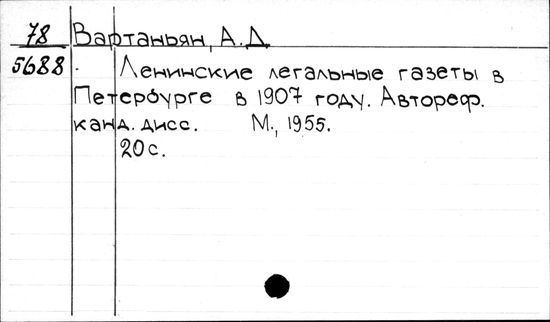 78 Вартаньян, А. Д
5688 Ленинские легальные газеты в
Петербурге в 1907 году. Автореф.
канд. дисс. М., 1955.
20 с.